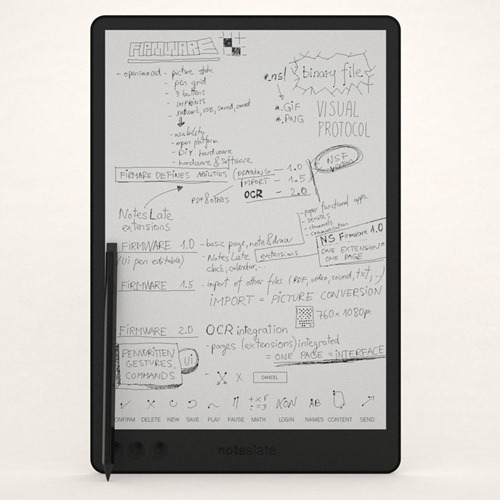 FIRMWARE
- opensourced - picture static
- pen grid
- 3 buttons
- IMPRINTS
- network, USB, sound, email
- usability
- open platform
- DIY hardware
- hardware & software
*.ns/
binary file
*.GIF
*.PNG
VISUAL
PROTOCOL
NSF
FIRMARE DEFINES ABILITIES
DRAWING - 1.0
IMPORT - 1.5
OCR - 2.0
PDF & others
NotesLate
extensions
- paper functional apps.
- services
- channels
- communication
NS Firmware 1.0
ONE EXTENSION =
ONE PAGE
FIRMWARE 1.0 - basic page, note & draw
(ui pen editable) - NotesLate extensions
clock, calendar, ..
FIRMWARE 1.5 - import of other files (PDF, video, sound, txt, ..)
IMPORT = PICTURE CONVERSION
760 × 1080px
FIRMWARE 2.0 OCR integration
- pages (extensions) integrated
= ONE PAGE = INTERFACE
PENWRITTEN
GESTURES,
COMMANDS
ui
CANCEL
IKON AB
CONFIRM DELETE NEW SAVE PLAY PAUSE MATH LOGIN NAMES CONTENT SEND
noteslate